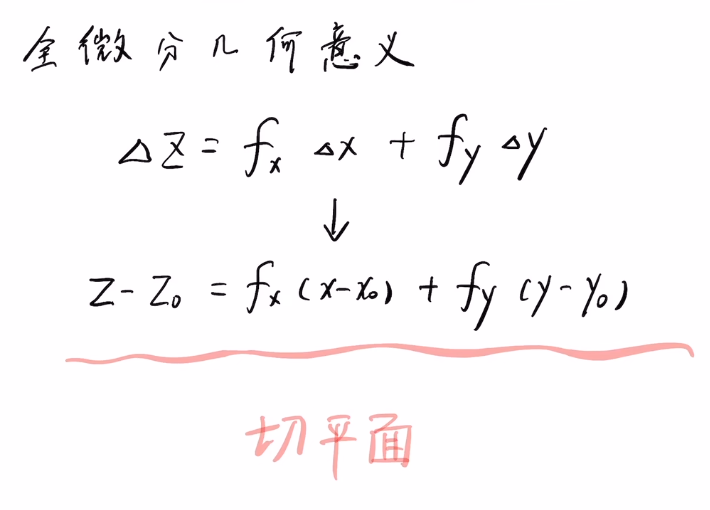 全微分几何意义
△Z = fx △x + fy △y
↓
Z - Z₀ = fx (x-x₀) + fy (y-y₀)
切平面